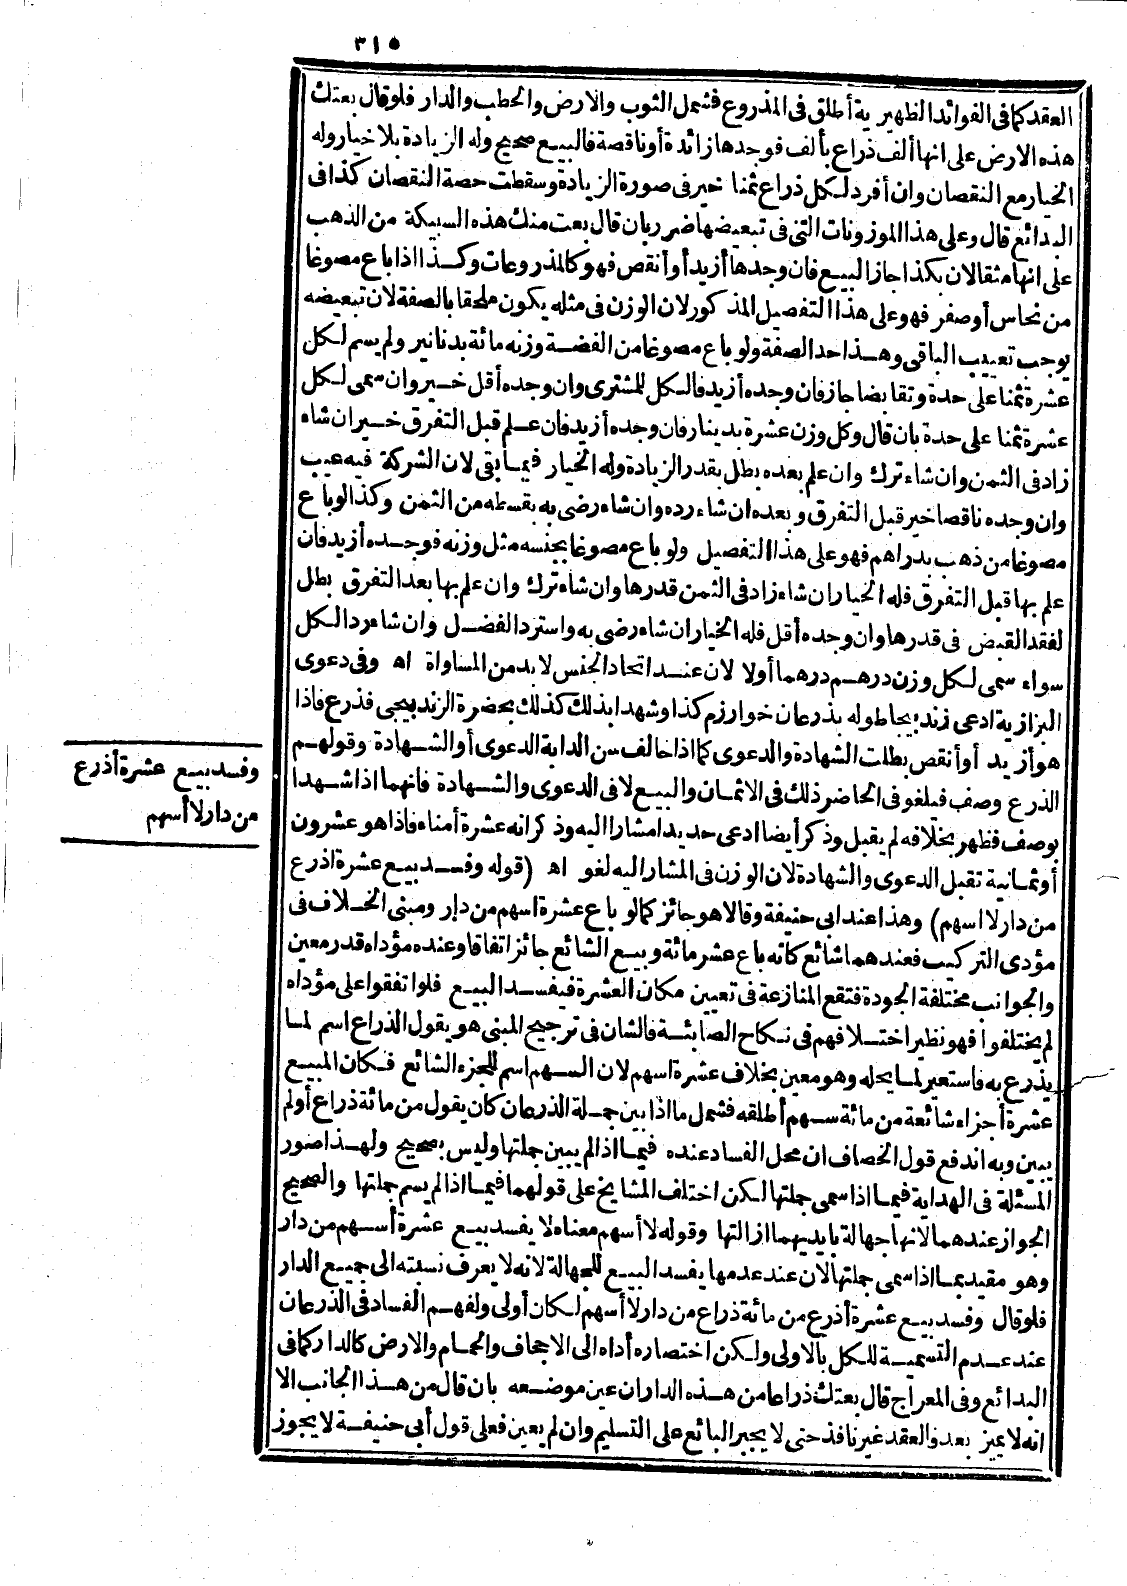 ٣١٥
العقد كما فى الفوائد الظهيرية أطلق فى المذروع فشمل الثوب والارض والحطب والدار فلو قال بعتك
هذه الارض على انها ألف ذراع بألف فوجدها زائدة أو ناقصة فالبيع صحيح وله الزيادة بلا خيار وله
الخيار مع النقصان وان أفرد لكل ذراع ثمنا خير فى صورة الزيادة وسقطت حصة النقصان كذا فى
البدائع قال وعلى هذا الموزونات التى فى تبعيضها ضرر بان قال بعت منك هذه السبيكة من الذهب
على انها مثقالان بكذا جاز البيع فان وجدها أزيد أو أنقص فهو كالمذروعات وكذا اذا باع مصوغا
من نحاس أو صفر فهو على هذا التفصيل المذكور لان الوزن فى مثله يكون ملحقا بالصفة لان تبعيضه
يوجب تعييب الباقى وهذا حد الصفة ولو باع مصوغا من الفضة وزنه مائة بدنانير ولم يسم لكل
عشرة ثمنا على حدة وتقابضا جاز فان وجده أزيد فالكل للمشترى وان وجده أقل خير وان سمى لكل
عشرة ثمنا على حدة بان قال وكل وزن عشرة بدينار فان وجده أزيد فان علم قبل التفرق خير ان شاء
زاد فى الثمن وان شاء ترك وان علم بعده بطل بقدر الزيادة وله الخيار فيما بقى لان الشركة فيه عيب
وان وجده ناقصا خير قبل التفرق وبعده ان شاء رده وان شاء رضى به بقسطه من الثمن وكذا لو باع
مصوغا من ذهب بدراهم فهو على هذا التفصيل ولو باع مصوغا بجنسه مثل وزنه فوجده أزيد فان
علم بها قبل التفرق فله الخيار ان شاء زاد فى الثمن قدرها وان شاء ترك وان علم بها بعد التفرق بطل
لفقد القبض فى قدرها وان وجده أقل فله الخيار ان شاء رضى به واسترد الفضل وان شاء رد الكل
سواء سمى لكل وزن درهم درهما أولا لان عند اتحاد الجنس لا بد من المساواة اه وفى دعوى
البزازية ادعى زندبيجا طوله بذرعان خوارزم كذا وشهدا بذلك كذلك بحضرة الزندبيجى فذرع فاذا
هو أزيد أو أنقص بطلت الشهادة والدعوى كما اذا خالف سن الدابة الدعوى أو الشهادة وقولهم
الذرع وصف فيلغو فى الحاضر ذلك فى الاثمان والبيع لا فى الدعوى والشهادة فانهما اذا شهدا
بوصف فظهر بخلافه لم يقبل وذكر أيضا ادعى حديدا مشارا اليه وذكر انه عشرة أمناء فاذا هو عشرون
أو ثمانية تقبل الدعوى والشهادة لان الوزن فى المشار اليه لغو اه (قوله وفسد بيع عشرة اذرع
من دار لا اسهم) وهذا عند ابى حنيفة وقالا هو جائز كما لو باع عشرة اسهم من دار ومبنى الخلاف فى
مؤدى التركيب فعندهما شائع كانه باع عشر مائة وبيع الشائع جائز اتفاقا وعنده مؤداه قدر معين
والجوانب مختلفة الجودة فتقع المنازعة فى تعيين مكان العشرة فيفسد البيع فلو اتفقوا على مؤداه
لم يختلفوا فهو نظير اختلافهم فى نكاح الصابئة فالشان فى ترجيح المبنى هو يقول الذراع اسم لما
يذرع به فاستعير لما يحله وهو معين بخلاف عشرة اسهم لان السهم اسم للجزء الشائع فكان المبيع
عشرة أجزاء شائعة من مائة سهم أطلقه فشمل ما اذا بين جملة الذرعان كان يقول من مائة ذراع أو لم
يبين وبه اندفع قول الخصاف ان محل الفساد عنده فيما اذا لم يبين جملتها وليس بصحيح ولهذا صور
المسئلة فى الهداية فيما اذا سمى جملتها لكن اختلف المشايخ على قولهما فيما اذا لم يسم جملتها والصحيح
الجواز عندهما لانها جهالة بايديهما ازالتها وقوله لا أسهم معناه لا يفسد بيع عشرة أسهم من دار
وهو مقيد بما اذا سمى جملتها لان عند عدمها يفسد البيع للجهالة لانه لا يعرف نسبته الى جميع الدار
فلو قال وفسد بيع عشرة أذرع من مائة ذراع من دار لا أسهم لكان أولى ولفهم الفساد فى الذرعان
عند عدم التسمية للكل بالاولى ولكن اختصاره أداه الى الاجحاف والحمام والارض كالدار كما فى
البدائع وفى المعراج قال بعتك ذراعا من هذه الدار ان عين موضعه بان قال من هذا الجانب الا
انه لا يميز بعد والعقد غير نافذ حتى لا يجبر البائع على التسليم وان لم يعين فعلى قول أبى حنيفة لا يجوز
وفسد بيع عشرة أذرع
من دار لا أسهم